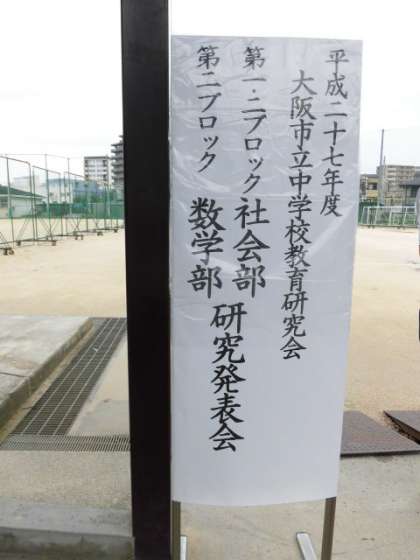 平成二十七年度
大阪市立中学校教育研究会
第一・二ブロック 社会部
第二ブロック 数学部
研究発表会